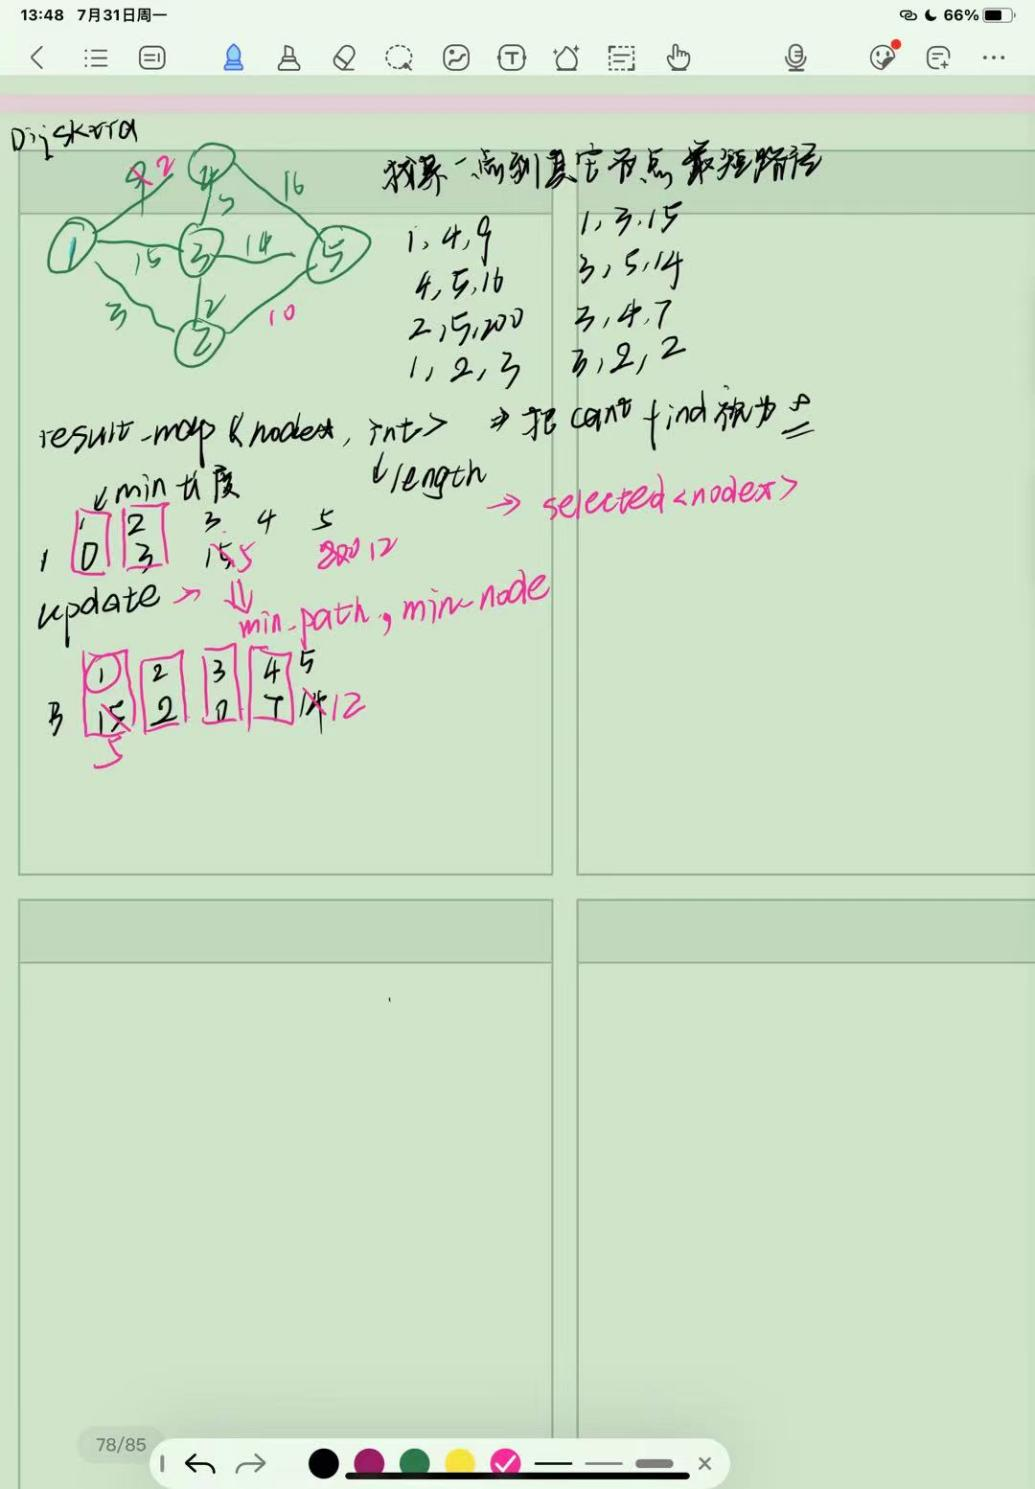 13:48 7月31日周一
66%
Dijskerra
2
4
16
5
1
15
3
14
5
3
2
2
10
找某一点到其它节点最短路径
1, 4, 9
1, 3, 15
4, 5, 16
3, 5, 14
2, 5, 200
3, 4, 7
1, 2, 3
3, 2, 2
result-map <node*, int> ⇒ 把 cant find 视为 ∞
↓ length
↙ min 长度
→ selected<node*>
1 2 3 4 5
1 0 3 15 5 200 12
update → ⇓
min-path, min-node
1 2 3 4 5
3 15 2 0 7 14 12
5
78/85